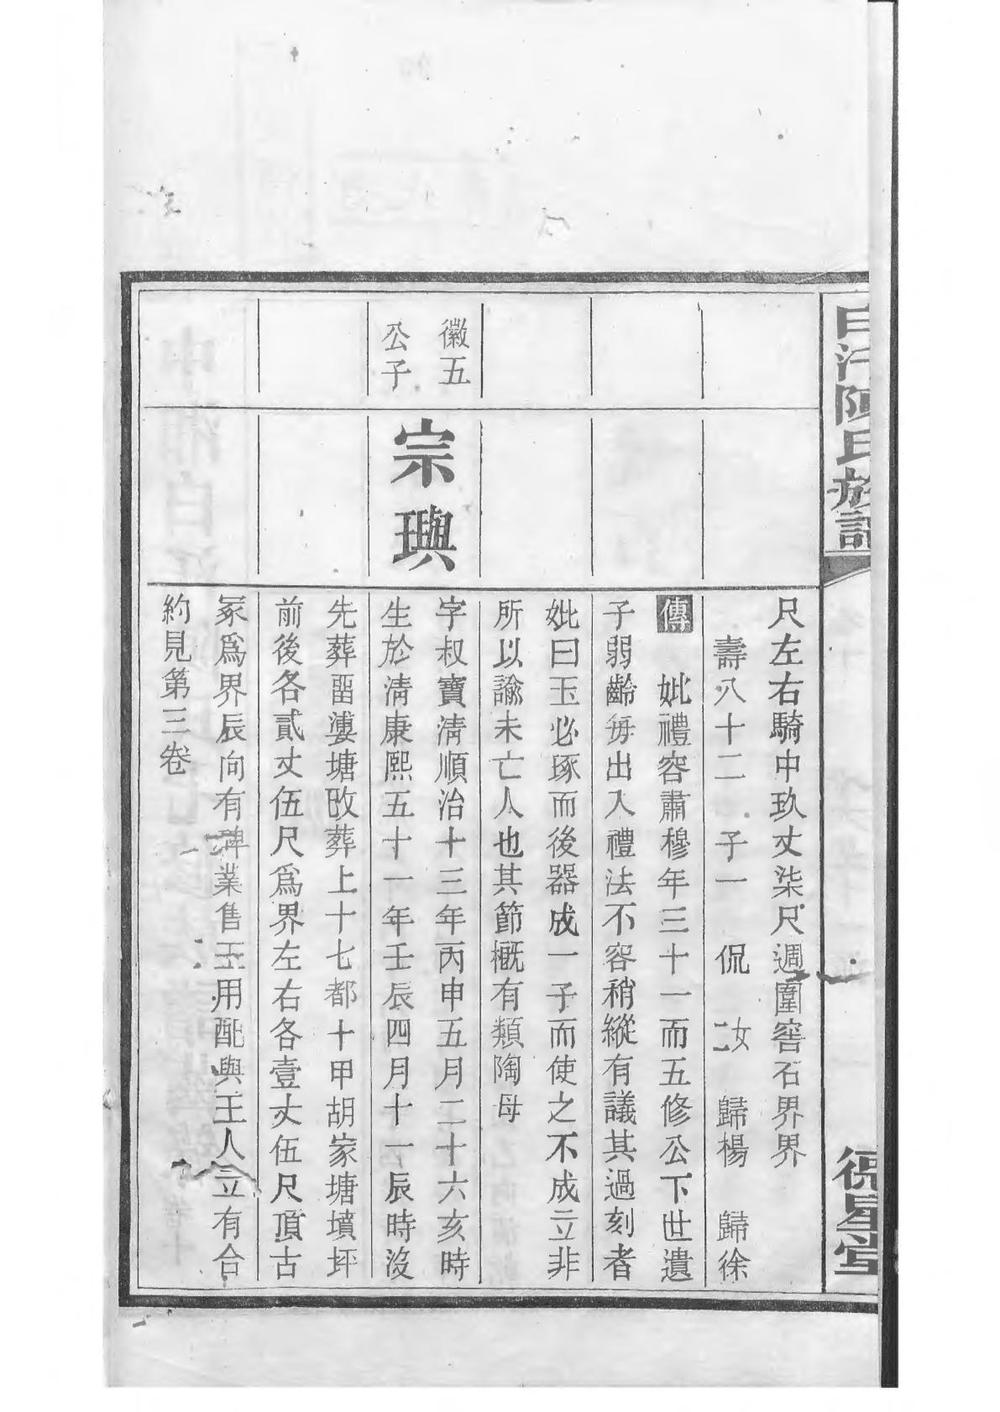 白汗陳氏族譜
德星堂
尺左右騎中玖丈柒尺週圍窖石界界
壽八十二 子一 侃 女二 歸楊 歸徐
傳 妣禮容肅穆年三十一而五修公下世遺
子弱齡毎出入禮法不容稍縱有議其過刻者
妣曰玉必琢而後器成一子而使之不成立非
所以諭未亡人也其節概有類陶母
徽五
公子
宗璵
字叔寶淸順治十三年丙申五月二十六亥時
生於淸康熙五十一年壬辰四月十一辰時沒
先葬畱塘改葬上十七都十甲胡家塘墳坪
前後各貳丈伍尺爲界左右各壹丈伍尺頂古
冢爲界辰向有碑業售玉用配與王人立有合
約見第三卷